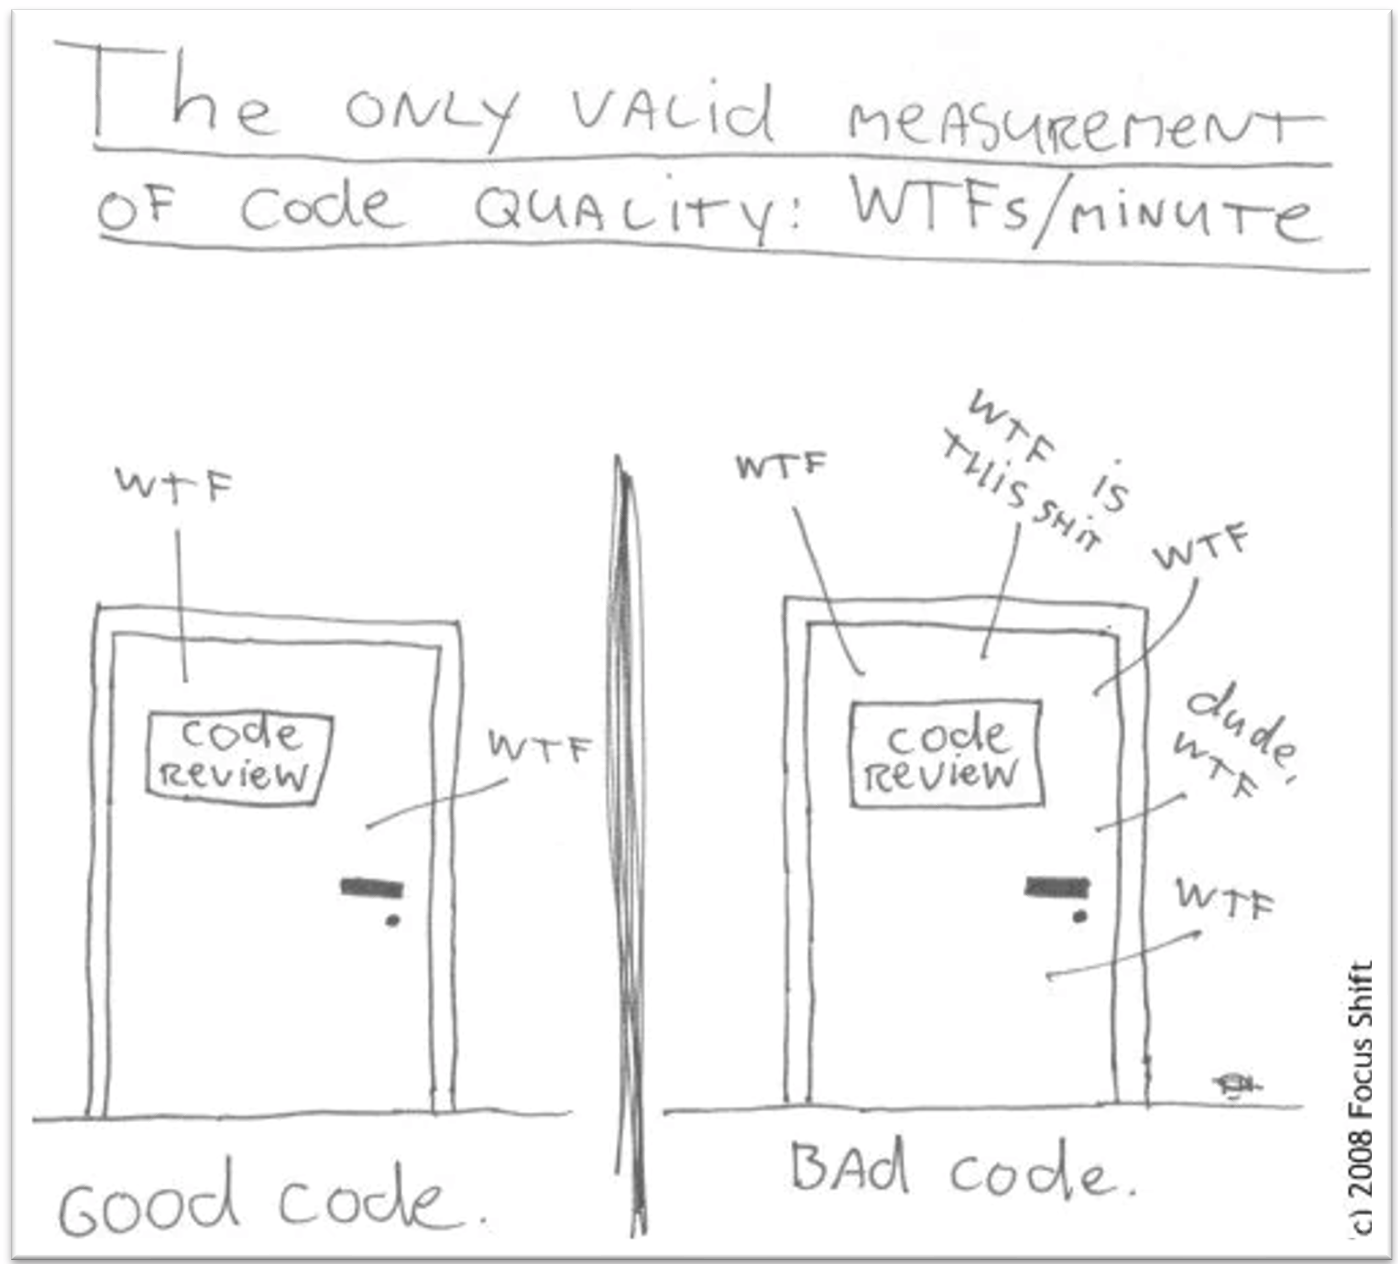 The ONLY VALID MEASUREMENT
OF Code QUALITY: WTFs/MINUTE
WTF
code
REVIEW
WTF
Good code.
WTF
WTF is
THIS SHIT
WTF
code
REVIEW
dude,
WTF
WTF
BAd code.
c) 2008 Focus Shift